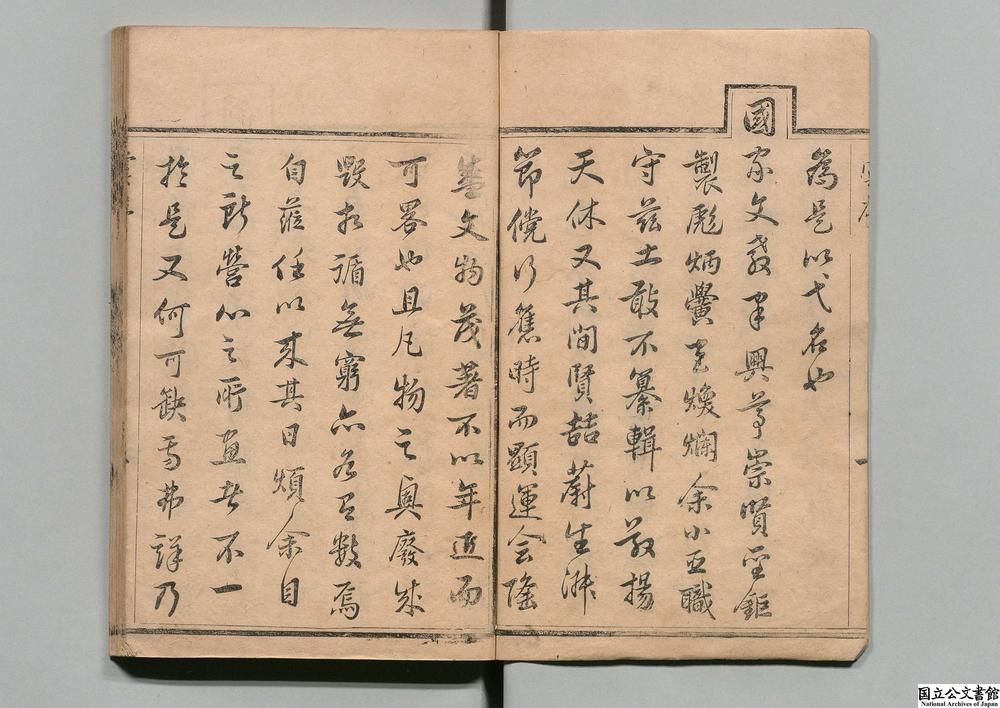 為是以弋名也
國
家文教聿興尊崇賢聖鉅
製彪炳黌宮煥爛余小臣職
守茲土敢不纂輯以敬揚
天休又其間賢喆蔚生淑
節儻行舊時而顯運会隆
盛文物茂著不以年近而
可畧也且凡物之興廢成
毀相循無窮亦各有数焉
自蒞任以来其日煩余目
之所營心之所画者不一
於是又何可缺焉弗詳乃
国立公文書館
National Archives of Japan